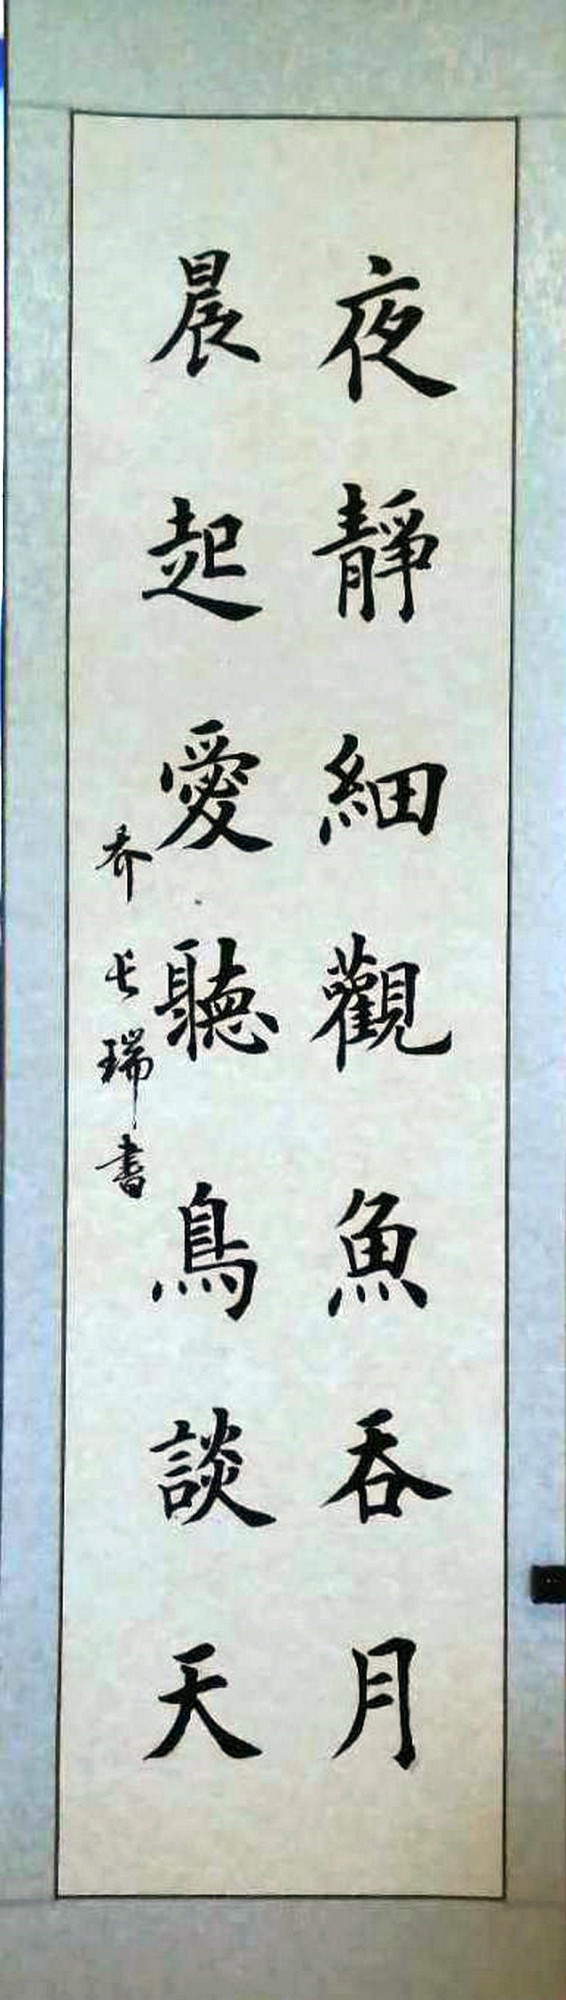 夜靜細觀魚吞月
晨起愛聽鳥談天
乔长瑞書